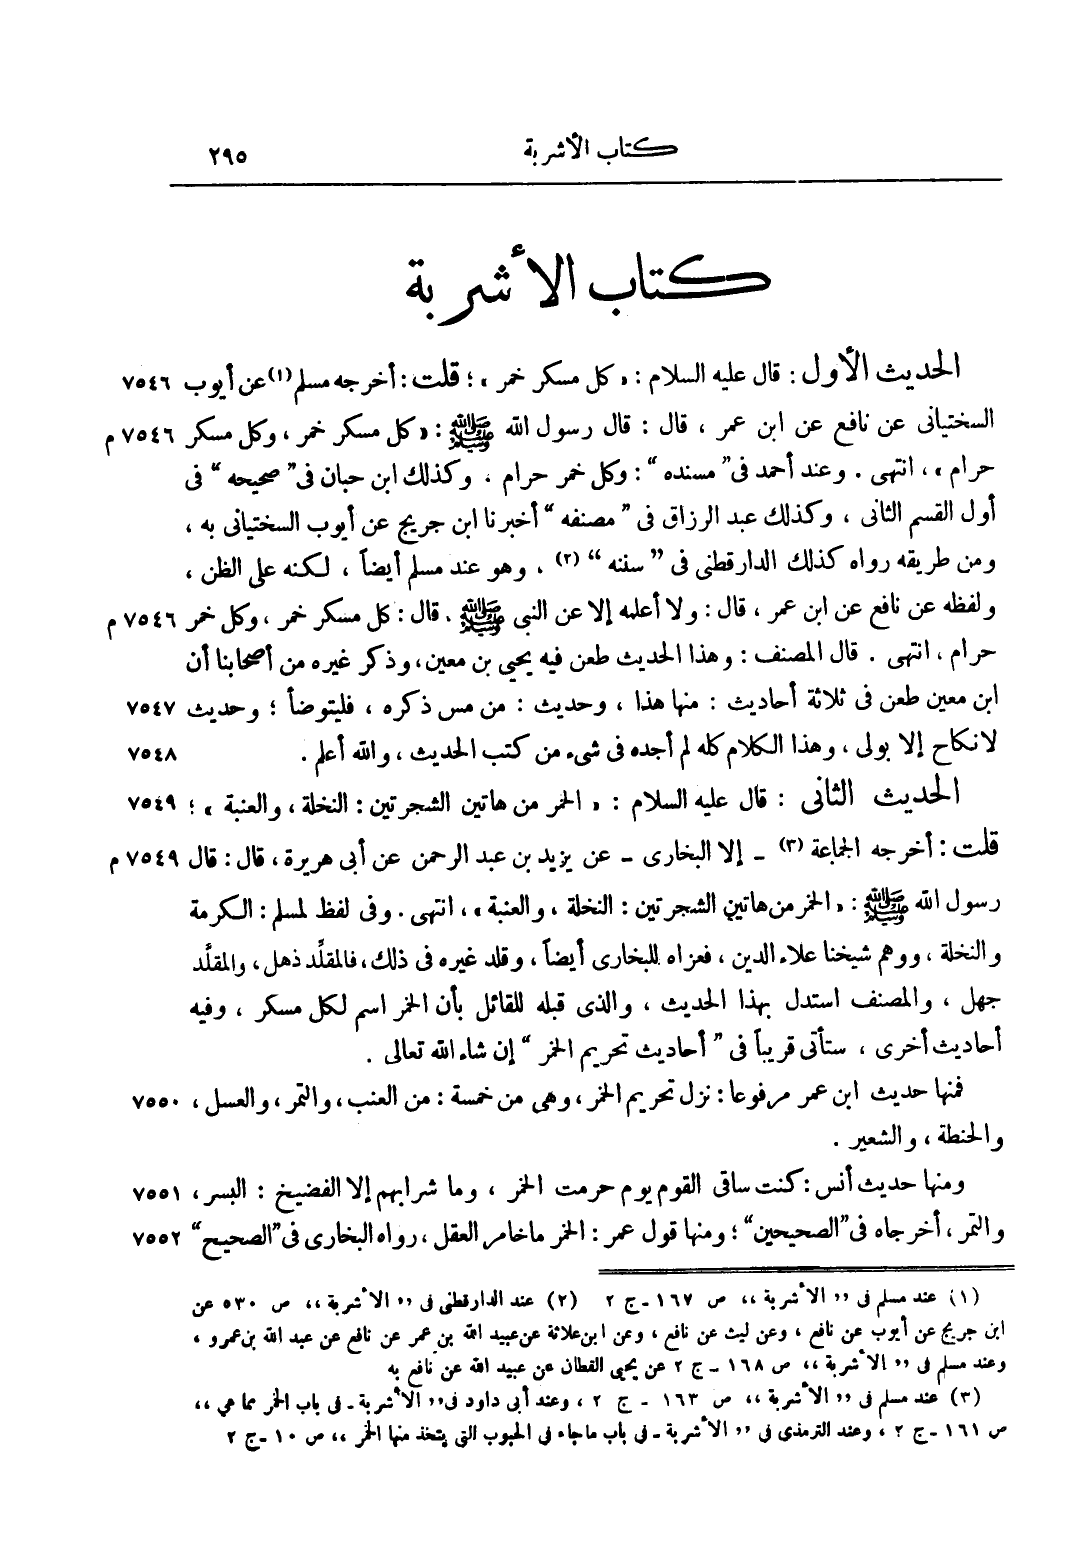 كتاب الأشربة ٢٩٥
كتاب الأشربة
الحديث الأول : قال عليه السلام : « كل مسكر خمر » ؛ قلت : أخرجه مسلم (١) عن أيوب ٧٥٤٦
السختيانى عن نافع عن ابن عمر ، قال : قال رسول الله ﷺ : « كل مسكر خمر ، وكل مسكر ٧٥٤٦ م
حرام » ، انتهى . وعند أحمد فى ” مسنده “ : وكل خمر حرام ، وكذلك ابن حبان فى ” صحيحه “ فى
أول القسم الثانى ، وكذلك عبد الرزاق فى ” مصنفه “ أخبرنا ابن جريج عن أيوب السختيانى به ،
ومن طريقه رواه كذلك الدارقطنى فى ” سننه “ (٢) ، وهو عند مسلم أيضاً ، لكنه على الظن ،
ولفظه عن نافع عن ابن عمر ، قال : ولا أعلمه إلا عن النبى ﷺ ، قال : كل مسكر خمر ، وكل خمر ٧٥٤٦ م
حرام ، انتهى . قال المصنف : وهذا الحديث طعن فيه يحيى بن معين، وذكر غيره من أصحابنا أن
ابن معين طعن فى ثلاثة أحاديث : منها هذا ، وحديث : من مس ذكره ، فليتوضأ ؛ وحديث ٧٥٤٧
لا نكاح إلا بولى ، وهذا الكلام كله لم أجده فى شىء من كتب الحديث ، والله أعلم . ٧٥٤٨
الحديث الثانى : قال عليه السلام : « الخمر من هاتين الشجرتين : النخلة ، والعنبة » ؛ ٧٥٤٩
قلت : أخرجه الجماعة (٣) ـ إلا البخارى ـ عن يزيد بن عبد الرحمن عن أبى هريرة ، قال : قال ٧٥٤٩ م
رسول الله ﷺ : « الخمر من هاتين الشجرتين : النخلة ، والعنبة » ، انتهى . وفى لفظ لمسلم : الكرمة
والنخلة ، ووهم شيخنا علاء الدين ، فعزاه للبخارى أيضاً ، وقلد غيره فى ذلك، فالمقلِّد ذهل ، والمقلَّد
جهل ، والمصنف استدل بهذا الحديث ، والذى قبله للقائل بأن الخمر اسم لكل مسكر ، وفيه
أحاديث أخرى ، ستأتى قريباً فى ” أحاديث تحريم الخمر “ إن شاء الله تعالى .
فمنها حديث ابن عمر مرفوعا : نزل تحريم الخمر ، وهى من خمسة : من العنب ، والتمر ، والعسل ، ٧٥٥٠
والحنطة ، والشعير .
ومنها حديث أنس : كنت ساقى القوم يوم حرمت الخمر ، وما شرابهم إلا الفضيخ : البسر ، ٧٥٥١
والتمر ، أخرجاه فى ”الصحيحين“ ؛ ومنها قول عمر : الخمر ماخامر العقل ، رواه البخارى فى ”الصحيح“ ٧٥٥٢
(١) عند مسلم فى ,, الأشربة ,, ص ١٦٧ ـ ج ٢ (٢) عند الدارقطنى فى ,, الأشربة ,, ص ٥٣٠ عن
ابن جريج عن أيوب عن نافع ، وعن ليث عن نافع ، وعن ابن علاثة عن عبيد الله بن عمر عن نافع عن عبد الله بن عمرو ،
وعند مسلم فى ,, الأشربة ,, ص ١٦٨ ـ ج ٢ عن يحيى القطان عن عبيد الله عن نافع به
(٣) عند مسلم فى ,, الأشربة ,, ص ١٦٣ ـ ج ٢ ، وعند أبى داود فى ,, الأشربة ـ فى باب الخمر مما هى ,,
ص ١٦١ ـ ج ٢ ، وعند الترمذى فى ,, الأشربة ـ فى باب ماجاء فى الحبوب التى يتخذ منها الخمر ,, ص ١٠ ـ ج ٢